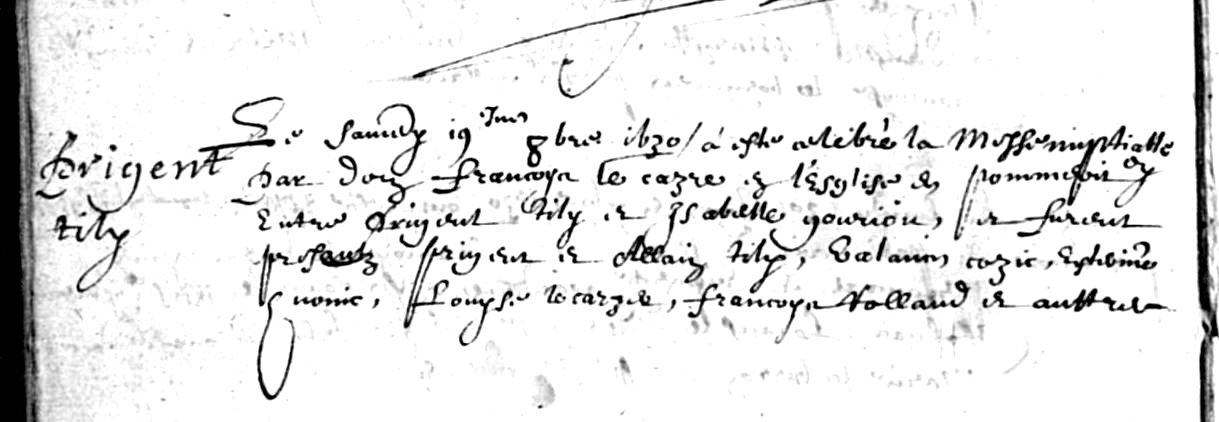 Prigent
tily
Le samedy 19 jme 8bre 1630 / a esté celebré la Messe nuptialle
par dom francoys le cazre en l'Esglise de
Entre Prigent tily et Isabelle gouriou, et furent
presantz prigent et Allain tily, cozic,
Louyse le cazre, francoys Rolland et auttres